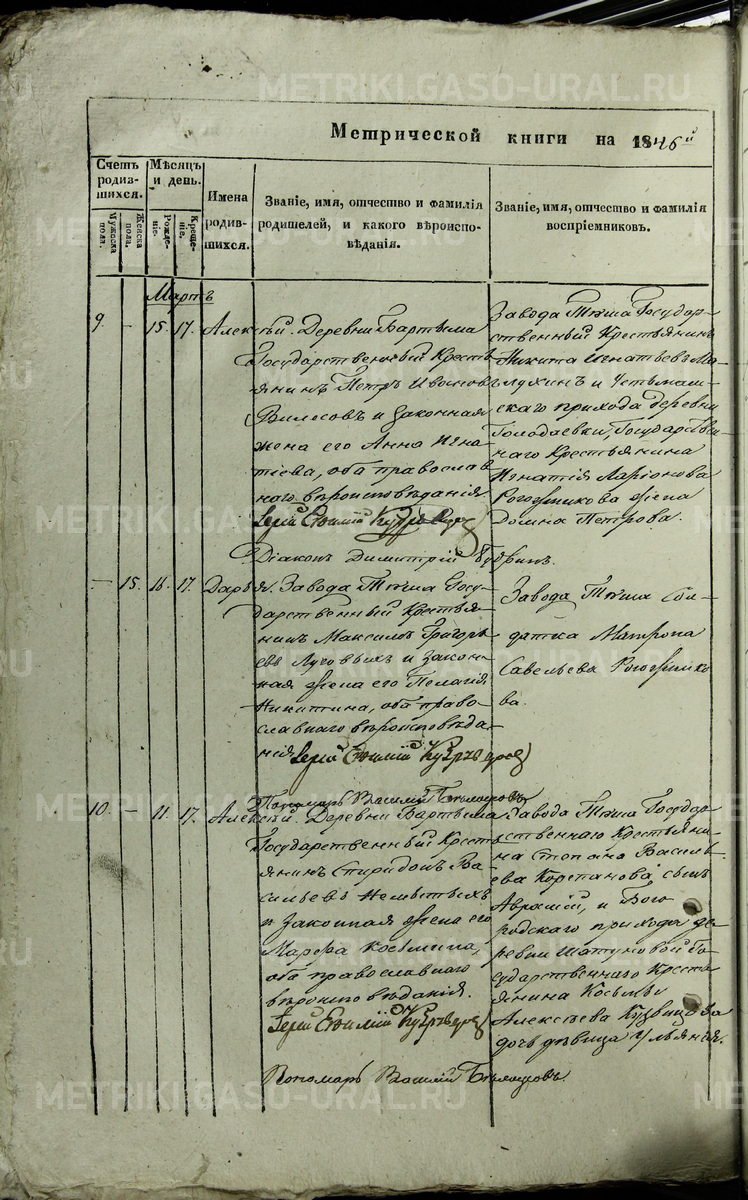 METRIKI.GASO-URAL.RU
Метрической книги на 1846й
Счетъ родив-
шихся.
Мужеска пола.
Женска пола.
Мѣсяцъ
и день.
Рожде-
нiе.
Креще-
нiе.
Имена
родив-
шихся.
Званіе, имя, отчество и фамилія
родителей, и какого вѣроиспо-
вѣданія.
Званіе, имя, отчество и фамилія
воспріемниковъ.
Мартъ
9. – 15. 17. Алексѣй. Деревни Бартыма
Государственный Кресть-
янинъ Петръ Ивановъ
Вилесовъ и законная
жена его Анна Игна-
тіева, оба православ
наго вѣроисповѣданія
Іерей Евѳимій
Діаконъ Димитрій
Завода Тиса Государ-
ственный Крестьянинъ
Никита Игнатьевъ Ма-
лухинъ и
скаго прихода деревни
Голодаевки, Государствен-
наго Крестьянина
Игнатія Ларіонова
Рогожникова жена
Домна Петрова.
– 15. 16. 17. Дарья. Завода Тиса Госу-
дарственный Крестья-
нинъ Максимъ Григорь
евъ Луговыхъ и закон-
ная жена его Пелагія
Никитина, оба право-
славнаго вѣроисповѣда-
нія
Іерей Евѳимій
Пономарь Василій
Завода Тиса Сол-
датка Матрона
Савельева Рогожнико
ва.
10. – 11. 17. Алексѣй. Деревни Бартыма
Государственный Кресть
янинъ Спиридонъ Ва-
сильевъ
и законная жена его
Марфа Косьмина,
оба православнаго
вѣроисповѣданія.
Іерей Евѳимій
Пономарь Василій
Завода Тиса Государ-
ственнаго Крестьяни-
на Степана Василь-
ева Корепанова сынъ
Аврамій, и Бого
родскаго прихода де-
ревни Шатуновой Го-
сударственнаго Кресть
янина Косьмы
Алексѣева
дочь дѣвица Ульянія.